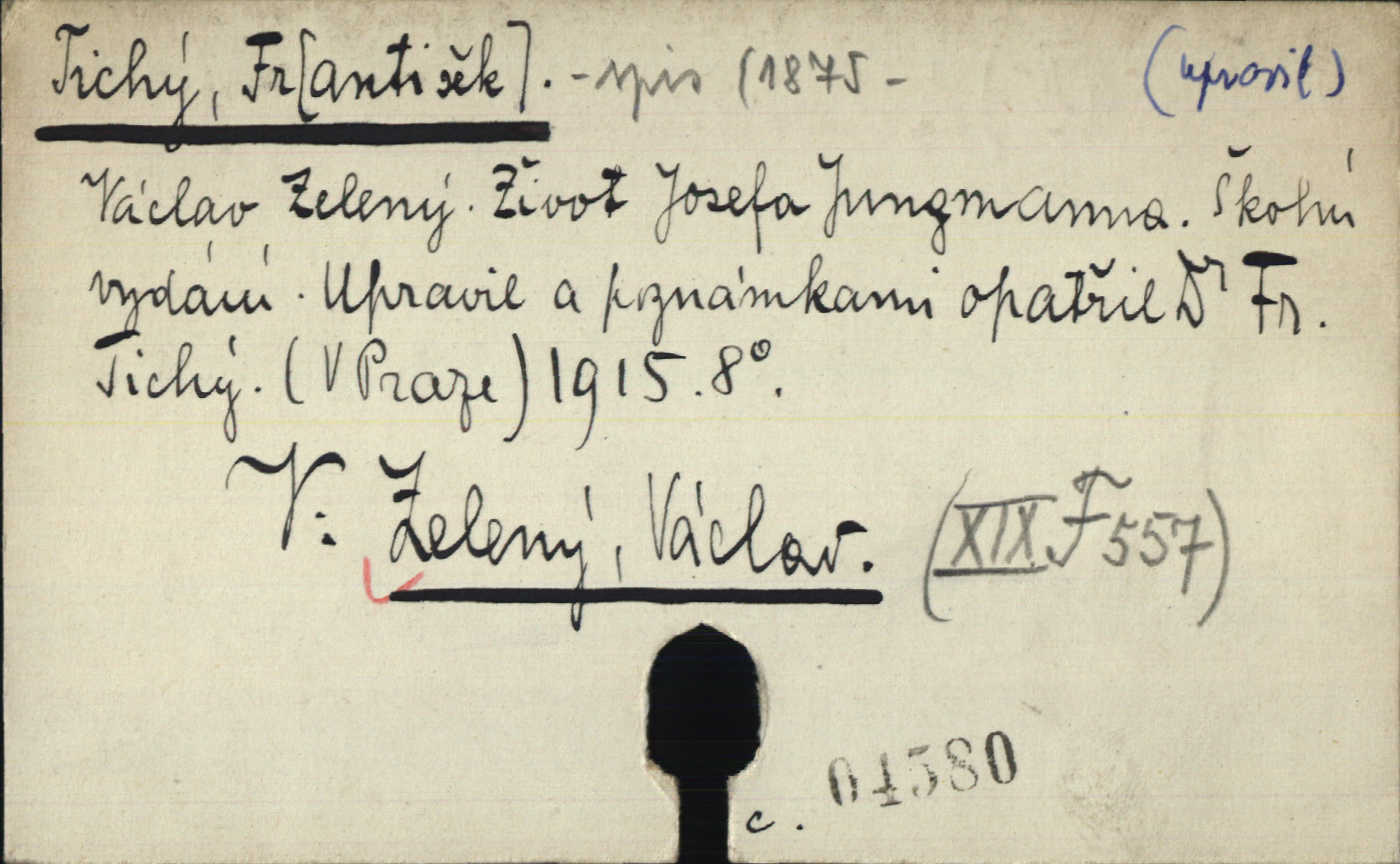 Tichý, Fr[antišek]. - spis (1875 - (upravil)
Václav Zelený. Život Josefa Jungmanna. Školní
vydání. Upravil a poznámkami opatřil Dr Fr.
Tichý. (V Praze) 1915. 8°.
V: Zelený, Václav. (XIX F 557)
c. 04580